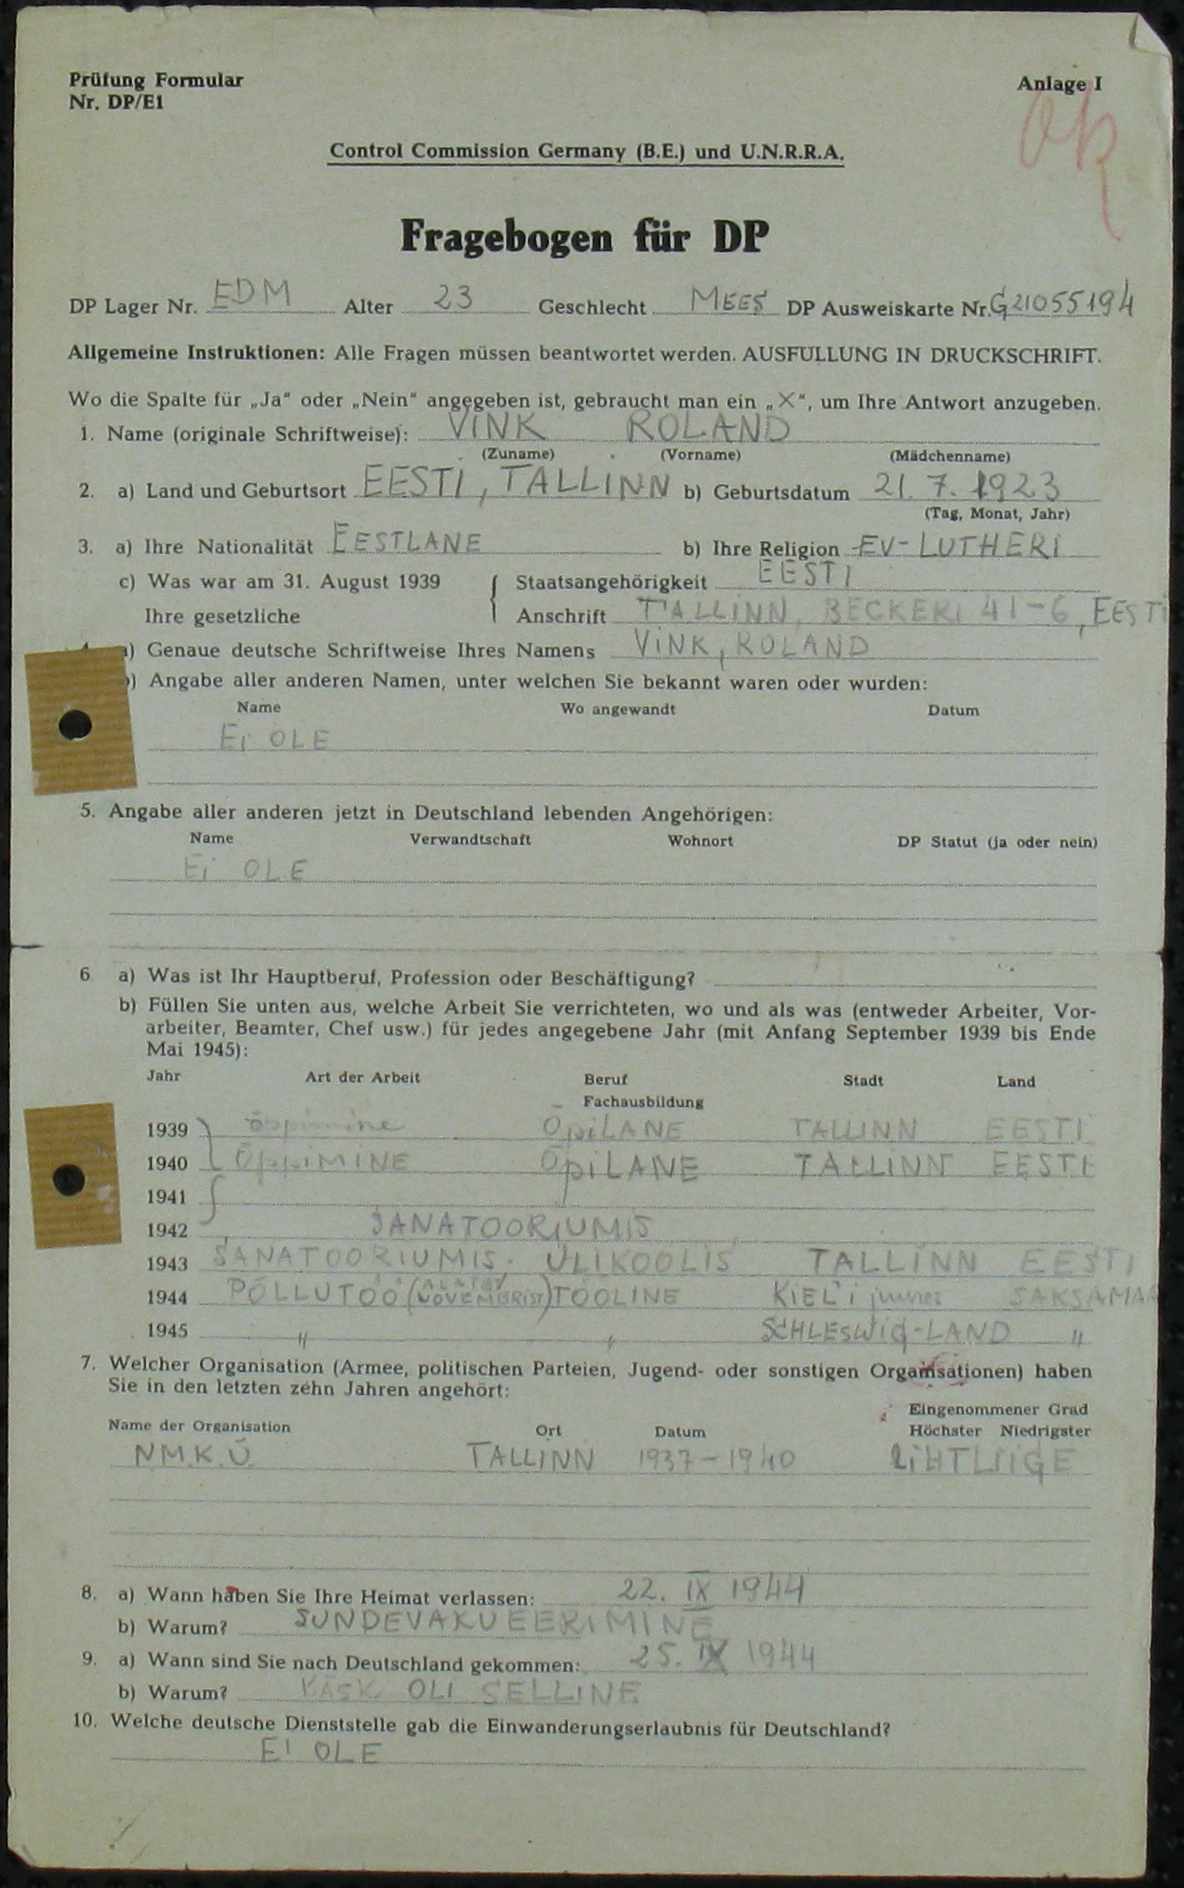 Prüfung Formular
Nr. DP/E1
Anlage I
Ok
Control Commission Germany (B.E.) und U.N.R.R.A.
Fragebogen für DP
DP Lager Nr. EDM Alter 23 Geschlecht MEES DP Ausweiskarte Nr. G21055194
Allgemeine Instruktionen: Alle Fragen müssen beantwortet werden. AUSFULLUNG IN DRUCKSCHRIFT.
Wo die Spalte für „Ja“ oder „Nein“ angegeben ist, gebraucht man ein „X“, um Ihre Antwort anzugeben.
1. Name (originale Schriftweise): VINK ROLAND
(Zuname) (Vorname) (Mädchenname)
2. a) Land und Geburtsort EESTI, TALLINN b) Geburtsdatum 21. 7. 1923
(Tag, Monat, Jahr)
3. a) Ihre Nationalität EESTLANE b) Ihre Religion EV-LUTHERI
c) Was war am 31. August 1939 { Staatsangehörigkeit EESTI
Ihre gesetzliche Anschrift TALLINN, BECKERI 41-6, EESTI
a) Genaue deutsche Schriftweise Ihres Namens VINK, ROLAND
) Angabe aller anderen Namen, unter welchen Sie bekannt waren oder wurden:
Name Wo angewandt Datum
Ei OLE
5. Angabe aller anderen jetzt in Deutschland lebenden Angehörigen:
Name Verwandtschaft Wohnort DP Statut (ja oder nein)
Ei OLE
6 a) Was ist Ihr Hauptberuf, Profession oder Beschäftigung?
b) Füllen Sie unten aus, welche Arbeit Sie verrichteten, wo und als was (entweder Arbeiter, Vor-
arbeiter, Beamter, Chef usw.) für jedes angegebene Jahr (mit Anfang September 1939 bis Ende
Mai 1945):
Jahr Art der Arbeit Beruf Stadt Land
Fachausbildung
1939 Õppimine ÕpiLANE TALLINN EESTI
1940 ÕppiMINE ÕpiLANE TALLINN EESTI
1941
1942 SANATOORIUMIS
1943 SANATOORIUMIS. ÜLIKOOLIS TALLINN EESTI
1944 PÕLLUTÖÖ (ALATES NOVEMBRIST) TÖÖLINE KIEL'i juures SAKSAMAA
1945 " " SCHLESWIG-LAND "
7. Welcher Organisation (Armee, politischen Parteien, Jugend- oder sonstigen Organisationen) haben
Sie in den letzten zehn Jahren angehört:
Eingenommener Grad
Name der Organisation Ort Datum Höchster Niedrigster
N.M.K.Ü. TALLINN 1937-1940 LiHTLIIGE
8. a) Wann haben Sie Ihre Heimat verlassen: 22. IX 1944
b) Warum? SUNDEVAKUEERIMINE
9. a) Wann sind Sie nach Deutschland gekommen: 25. IX 1944
b) Warum? KÄSK OLI SELLINE
10. Welche deutsche Dienststelle gab die Einwanderungserlaubnis für Deutschland?
EI OLE